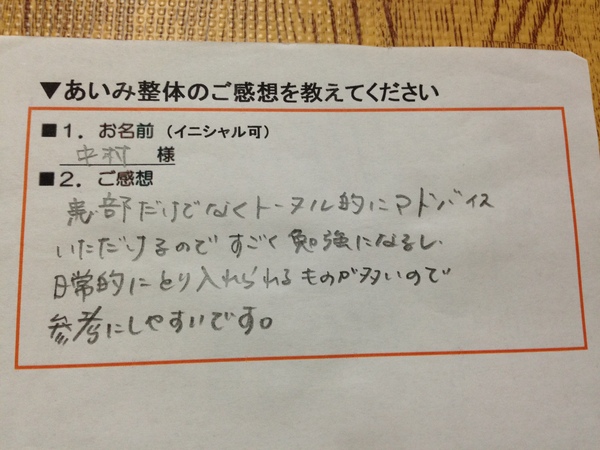 ▼あいみ整体のご感想を教えてください
■1．お名前（イニシャル可）
中村 様
■2．ご感想
患部だけでなくトータル的にアドバイス
いただけるのですごく勉強になるし、
日常的にとり入れられるものが多いので
参考にしやすいです。